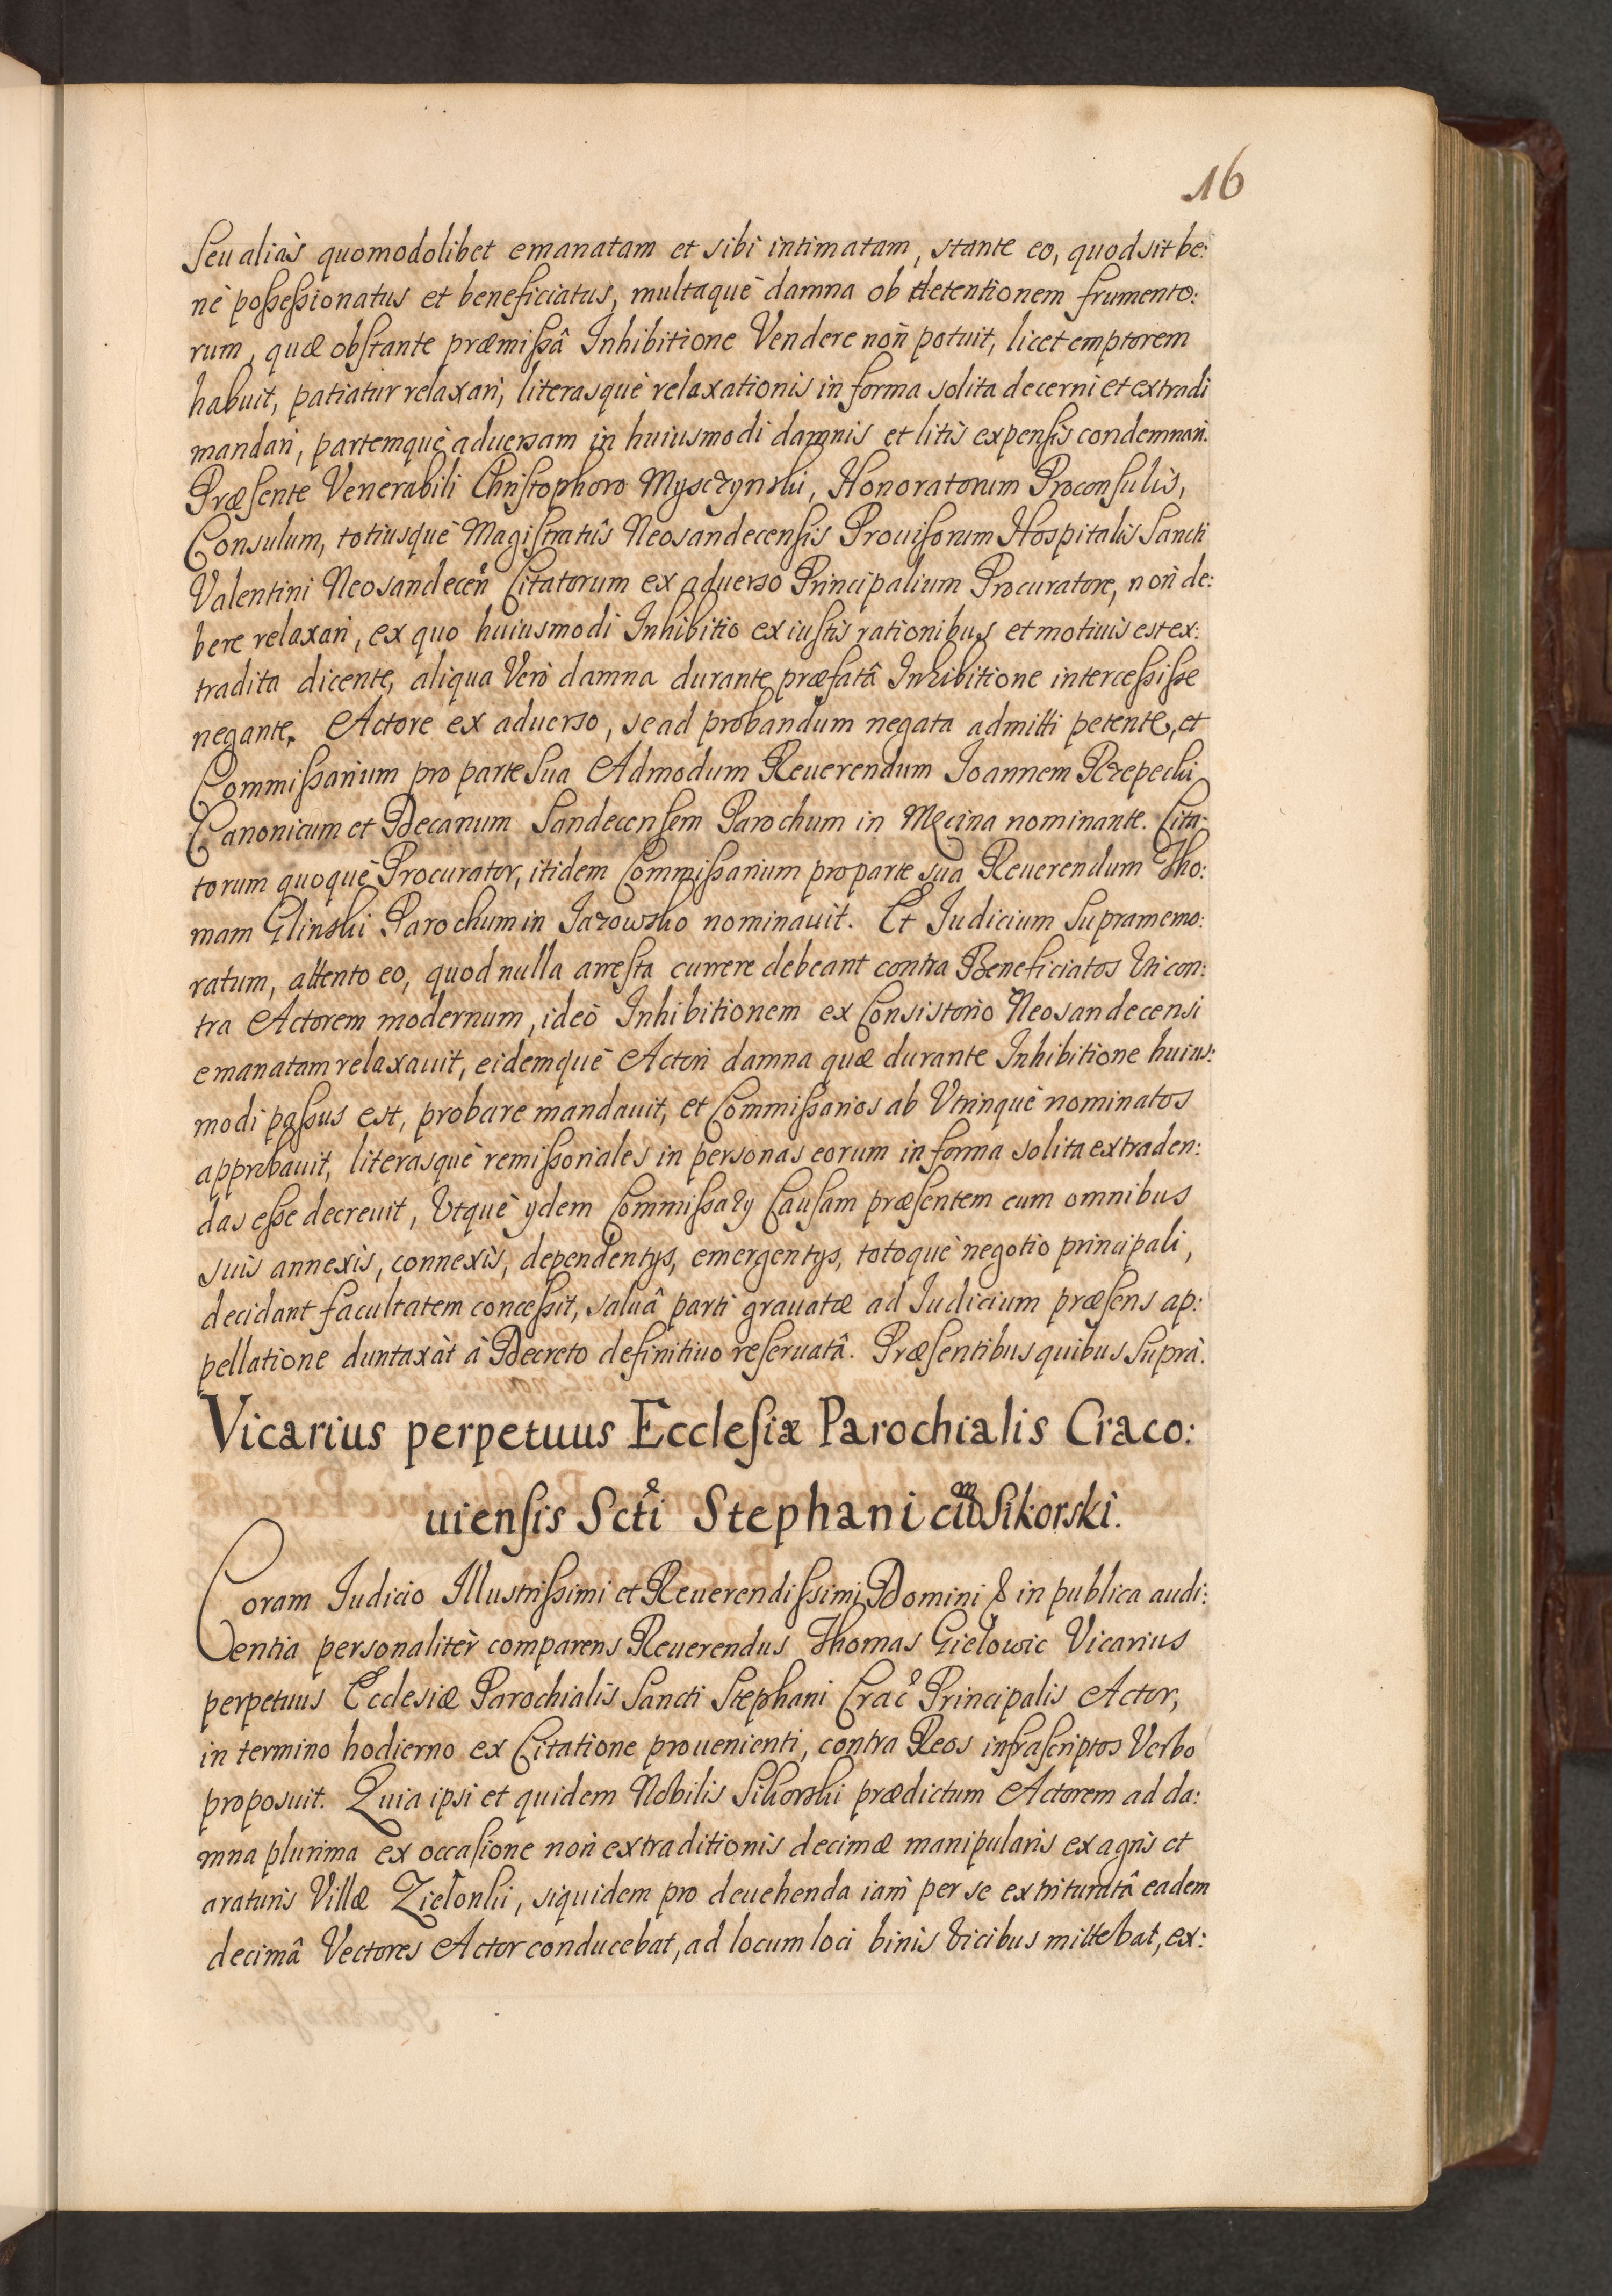 16
Seu aliàs quomodolibet emanatam et sibi intimatam, stante eo, quod sit be:
nè poßeßionatus et beneficiatus, multaquè damna ob detentionem frumento:
rum, quæ obstante præmißâ Inhibitione Vendere noñ potuit, licet emptorem
habuit, patiatur relaxari, literasquè relaxationis in forma solita decerni et extradi
mandari, partemquè aduersam in huiusmodi damnis et litis expensis condemnari.
Præsente Venerabili Christophoro Mysczynski, Honoratorum Proconsulis,
Consulum, totiusquè Magistratûs Neosandecensis Prouisorum Hospitalis Sancti
Valentini Neosandeceñ Citatorum ex aduerso Principalium Procuratore, noñ de:
bere relaxari, ex quo huiusmodi Inhibitio ex iustis rationibus et motiuis est ex:
tradita dicente, aliqua Verò damna durante præfatâ Inhibitione interceßiße
negante. Actore ex aduerso, se ad probandum negata admitti petente, et
Commißarium pro parte sua Admodum Reuerendum Joannem Rzepecki
Canonicum et Decanum Sandecensem Parochum in Męcina nominante. Cita:
torum quoquè Procurator, itidem Commißarium pro parte sua Reuerendum Tho:
mam Glinski Parochum in Jazowsko nominauit. Et Judicium Supramemo:
ratum, attento eo, quod nulla arresta currere debeant contra Beneficiatos Vti con:
tra Actorem modernum, ideò Inhibitionem ex Consistorio Neosandecensi
emanatam relaxauit, eidemquè Actori damna quæ durante Inhibitione huius:
modi paßus est, probare mandauit, et Commißarios ab Vtrinquè nominatos
approbauit, literasquè remißoriales in personas eorum in forma solita extraden:
das eße decreuit, Vtquè ydem Commißarÿ Causam præsentem cum omnibus
suis annexis, connexis, dependentÿs, emergentÿs, totoquè negotio principali,
decidant facultatem conceßit, saluâ parti grauatæ ad Judicium præsens ap:
pellatione duntaxàt à Decreto definitiuo reseruatâ. Præsentibus quibus suprà.
Vicarius perpetuus Ecclesiæ Parochialis Craco:
uiensis Scti Stephani cum Sikorski.
Coram Judicio Illustrißimi et Reuerendißimi Domini & in publica audi:
entia personalitèr comparens Reuerendus Thomas Giełowic Vicarius
perpetuus Ecclesiæ Parochialis Sancti Stephani Crac Principalis Actor,
in termino hodierno ex Citatione prouenienti, contra Reos infrascriptos Verbo
proposuit. Quia ipsi et quidem Nobilis Sikorski prædictum Actorem ad da:
mna plurima ex occasione noñ extraditionis decimæ manipularis ex agris et
araturis Villæ Zielonki, siquidem pro deuehenda iam per se extrituratâ eadem
decimâ Vectores Actor conducebat, ad locum loci binis Vicibus mittebat, ex: